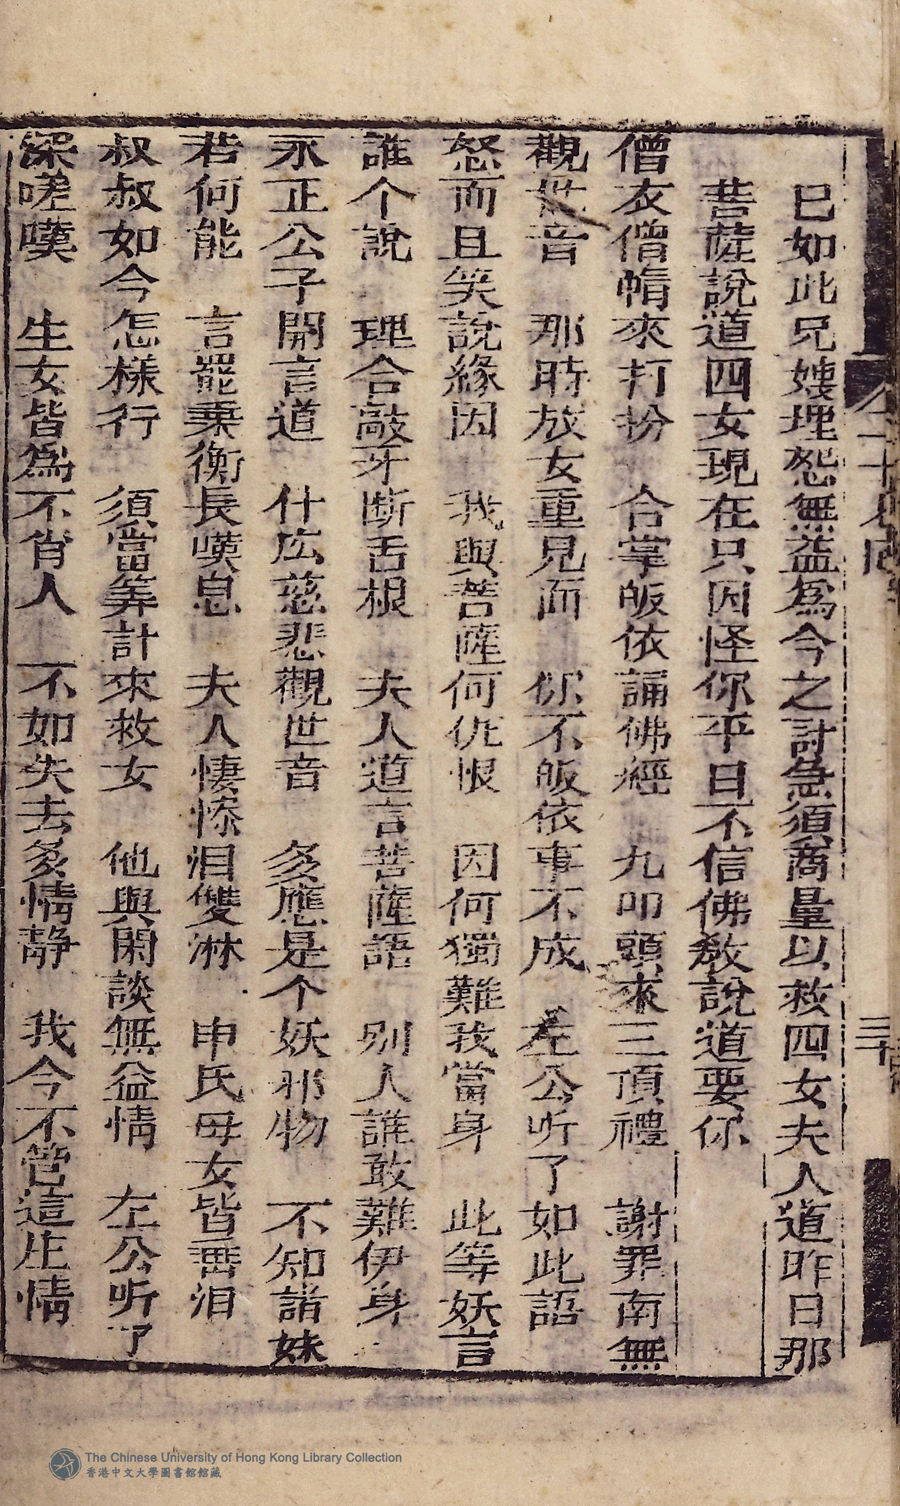 已如此兄嫂埋怨無益為今之計急須商量以救四女夫人道昨日那
菩薩說道四女現在只因怪你平日不信佛教說道要你
僧衣僧帽來打扮 合掌皈依誦佛經 九叩頭來三頂禮 謝罪南無
觀世音 那時放女重見面 你不皈依事不成 左公听了如此語
怒而且笑說緣因 我與菩薩何仇恨 因何獨難我當身 此等妖言
誰个說 理合敲牙断舌根 夫人道言菩薩語 别人誰敢難伊身
永正公子開言道 什広慈悲觀世音 多應是个妖邪物 不知諸妹
若何能 言罷秉衡長嘆息 夫人悽慘泪雙淋 申氏母女皆垂泪
叔叔如今怎樣行 須當筭計來救女 他與閑談無益情 左公听了
深嗟嘆 生女皆為不肖人 不如失去多情静 我今不管這庄情
三十
The Chinese University of Hong Kong Library Collection
香港中文大學圖書館館藏